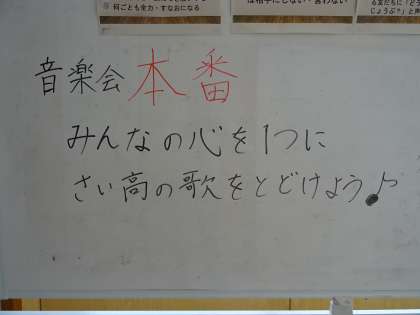 何ごとも全力・すなおになる
は相手にしない・言わない
る友だちに「どう
じょうぶ?」と声
音楽会 本番
みんなの心を1つに
さい高の歌をとどけよう♪